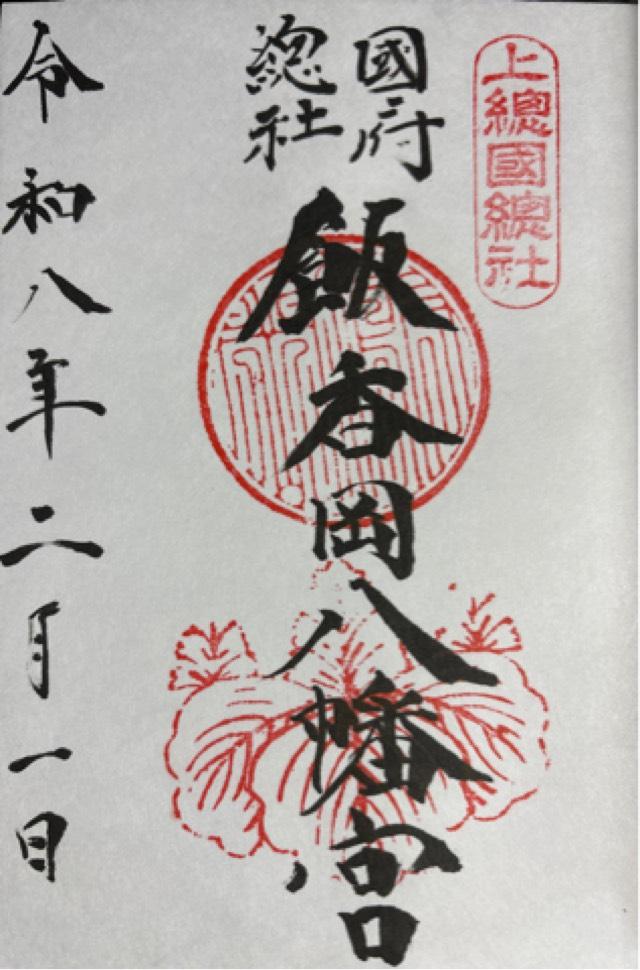 上總國總社
國府
総社
飯香岡八幡宮
令和八年二月一日